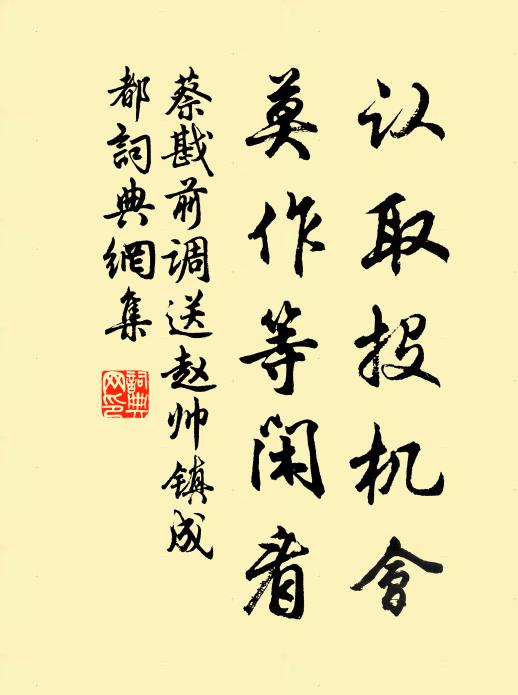 认取投机会
莫作等闲看
蔡戡前调送赵帅镇成
都词典網集
詞典
网印